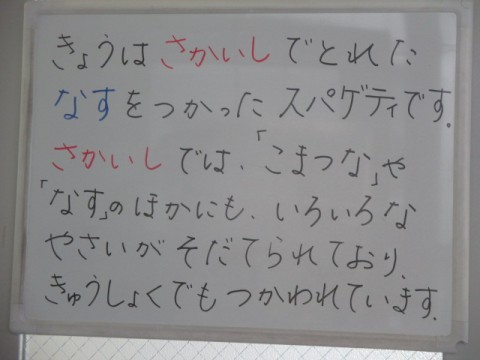 きょうは さかいし でとれた
なすをつかった スパゲティです.
さかいし では、「こまつな」や
「なす」の ほかにも、いろいろな
やさいが そだてられており、
きゅうしょくでも つかわれています.